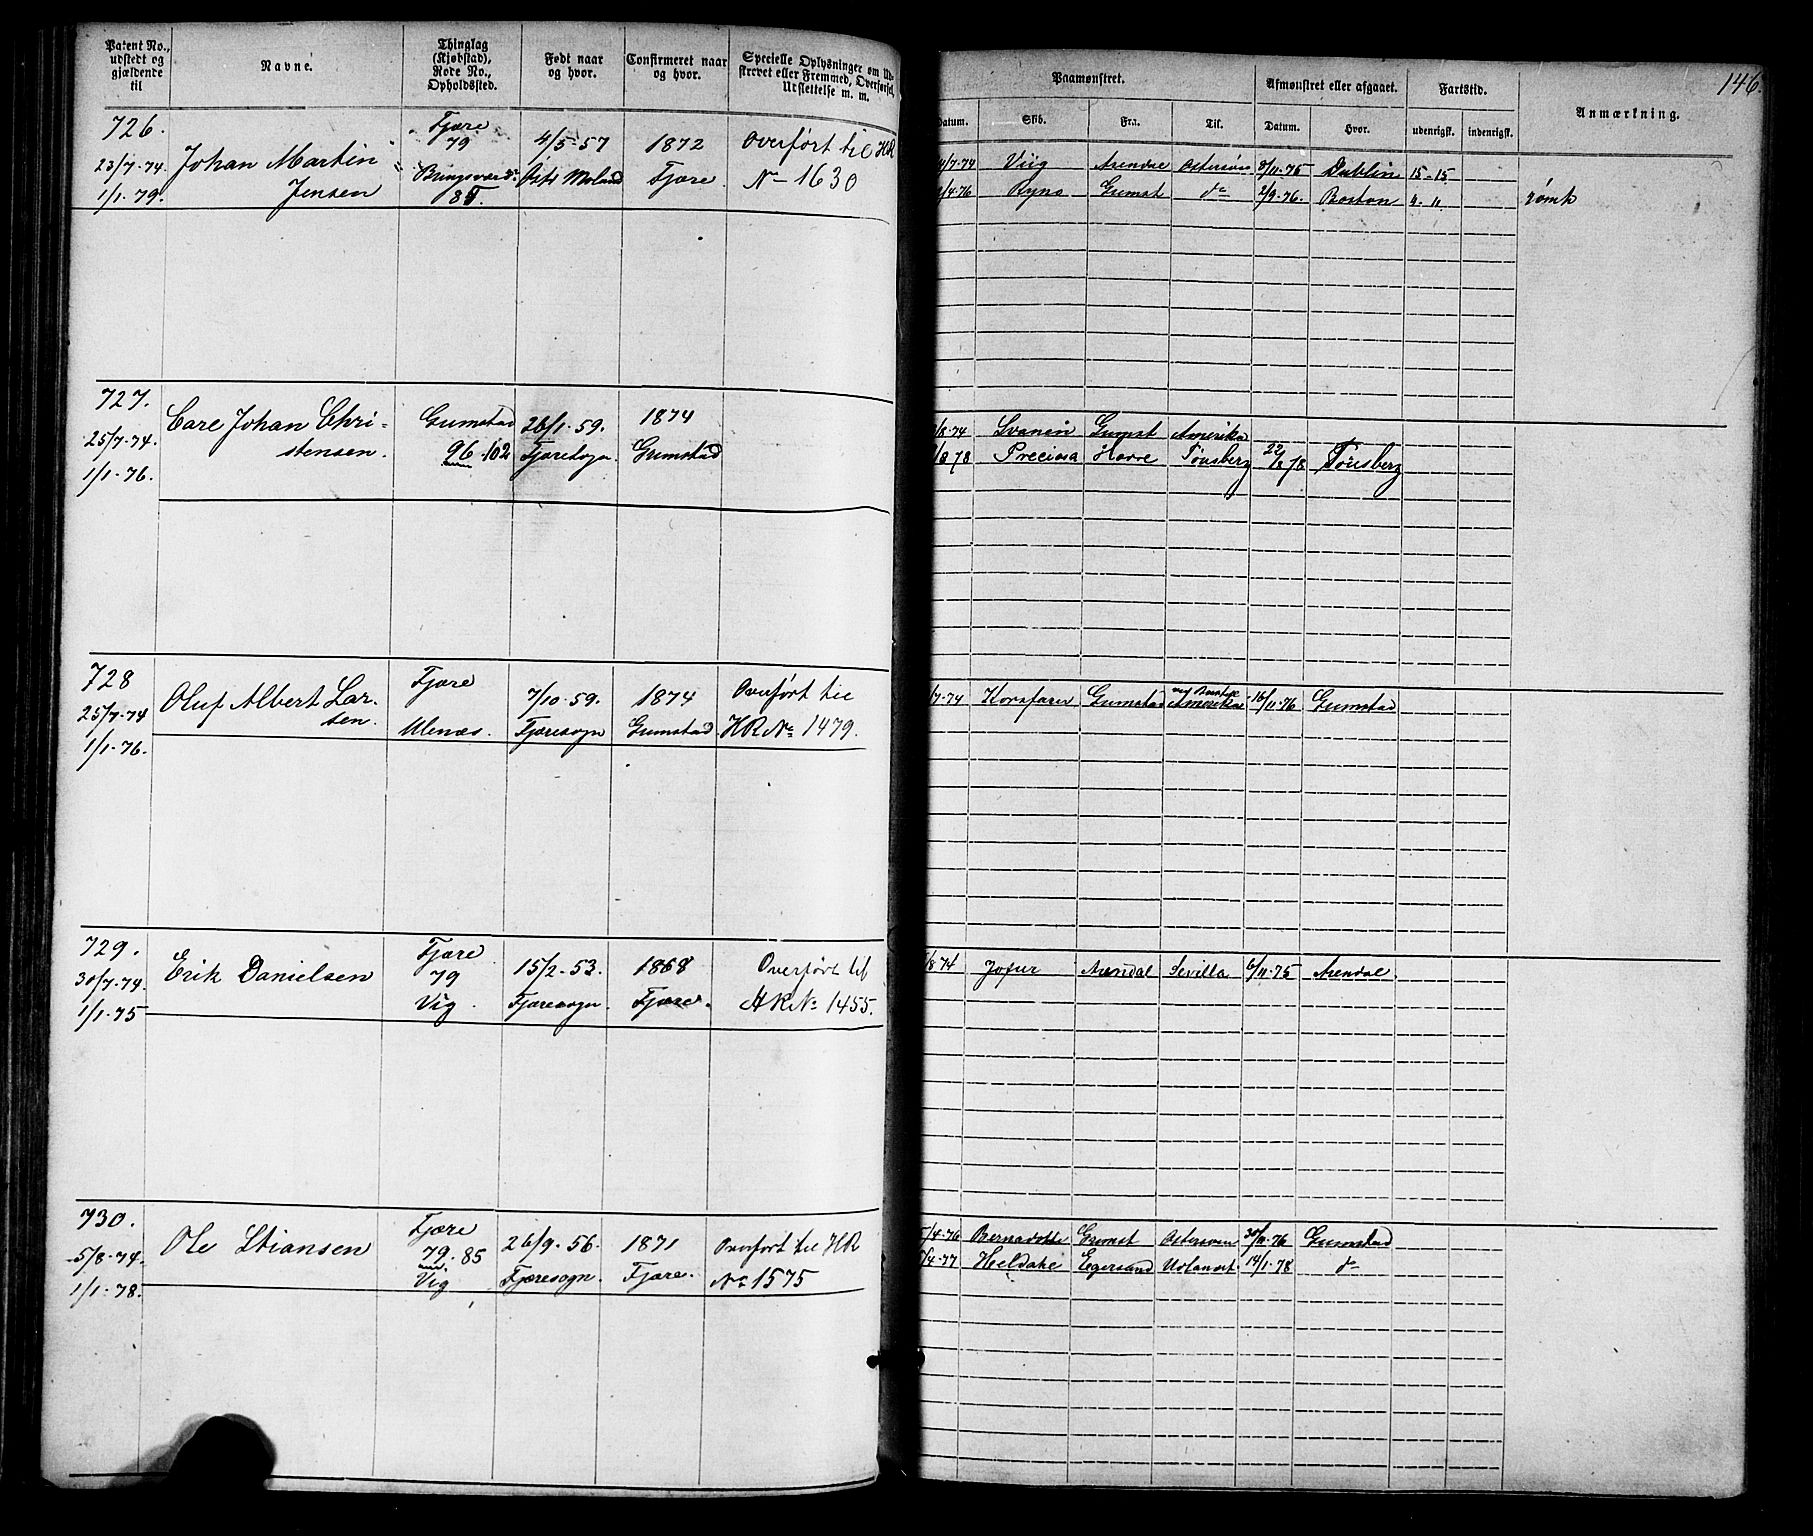 Patent No., udstedt og gjældende til
Navne.
Thinglag (Kjøbstad), Rode No., Opholdssted.
Født naar og hvor.
Confirmeret naar og hvor.
Specielle Oplysninger om Udskrevet eller Fremmed, Overførsel, Udslettelse m. m.
Paamønstret.
Datum. Skib. Fra. Til.
Afmønstret eller afgaaet.
Datum. Hvor.
Fartstid.
udenrigsk. indenrigsk.
Anmærkning.
146.
726. Fjære
79 4/5-57 1872 Overført til HR
23/7-74 Johan Martin
Jensen Østr Moland Fjære No 1630
1/1-79. 85
4/7-74 Viig Arendal Østersøen 8/11-75 Dublin 15-15
/4-76 Grimst do 2/9-76. Boston rømt
727.
25/7-74 Carl Johan Chri-
stensen.
1/1-76.
Grimstad 26/1-59. 1874
96 102 Fjæresogn. Grimstad
/8-74 Svanen Grimst Amerika
/8 78 Preciosa Havre Tønsberg 22/8 78 Tønsberg
728 Fjære
25/7-74 Oluf Albert Lar-
sen. 7/10-59. 1874 Overført til
1/1-76. Ulenæs. Fjæresogn Grimstad HR No 1479.
/7-74 Korsfarer Grimstad Amerika 16/11-76 Grimstad
729. Fjære
30/7-74. Erik Danielsen 79 15/2-53. 1868 Overført til
1/1-75 Vig. Fjæresogn. Fjære. HR No 1455.
/8 74 Jofur Arendal Sevilla 6/11-75 Arendal.
730. Fjære
5/8-74. Ole Stiansen 79. 85 26/9-56. 1871 Overført til HR
1/1-78. Vig Fjæresogn. Fjære. No 1575
/4-76 Bernadotte Grimst Østersøen 30/11-76 Grimstad
/4-77 Egersund Udlandet 14/1-78 do